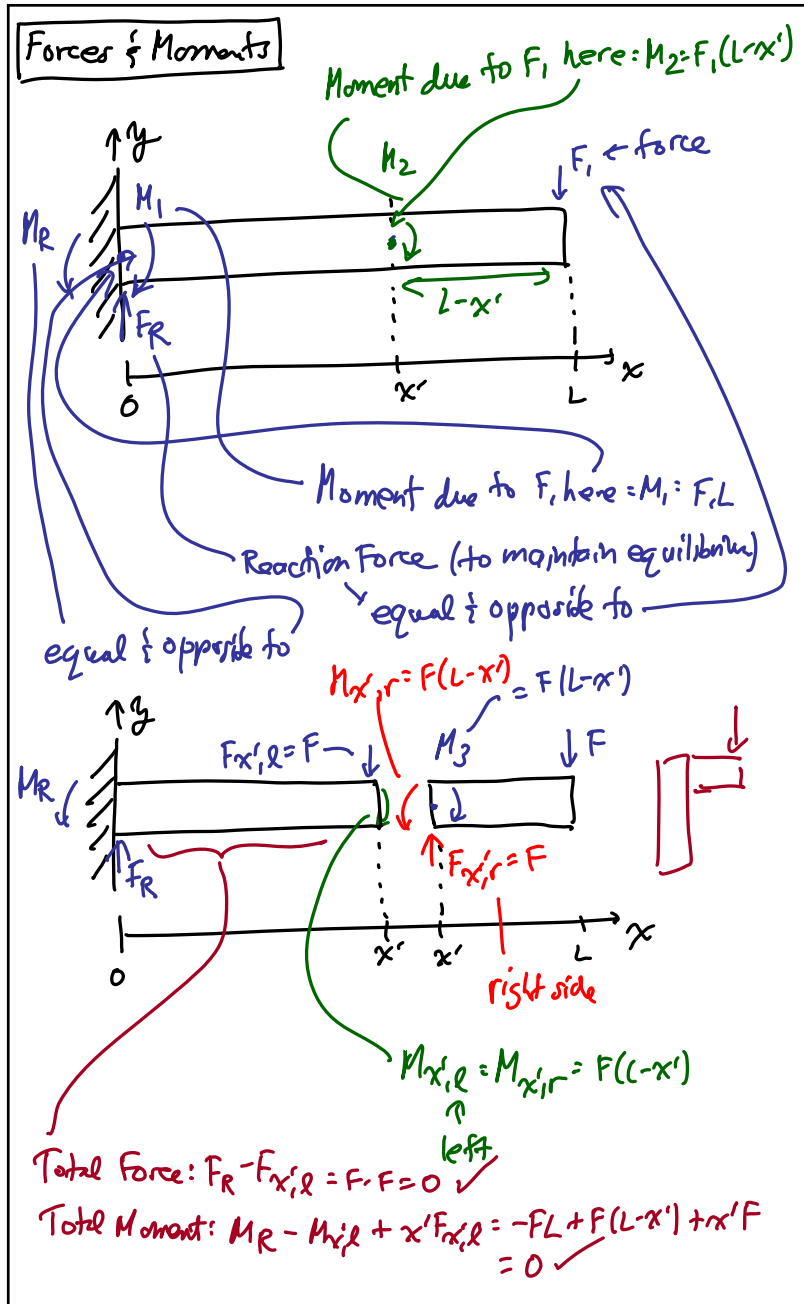 Forces & Moments
Moment due to F₁ here: M₂ = F₁(L-x')
y
M₂
F₁ ← force
M_R
M₁
L-x'
F_R
0
x'
L
x
Moment due to F₁ here = M₁ = F₁L
Reaction Force (to maintain equilibrium)
equal & opposite to
equal & opposite to
M_x',r = F(L-x')
y
F_x',l = F
M₃ = F(L-x')
F
M_R
F_R
F_x',r = F
0
x'
x'
L
x
right side
M_x',l = M_x',r = F(L-x')
left
Total Force: F_R - F_x',l = F - F = 0 ✓
Total Moment: M_R - M_x',l + x'F_x',l = -FL + F(L-x') + x'F
= 0 ✓